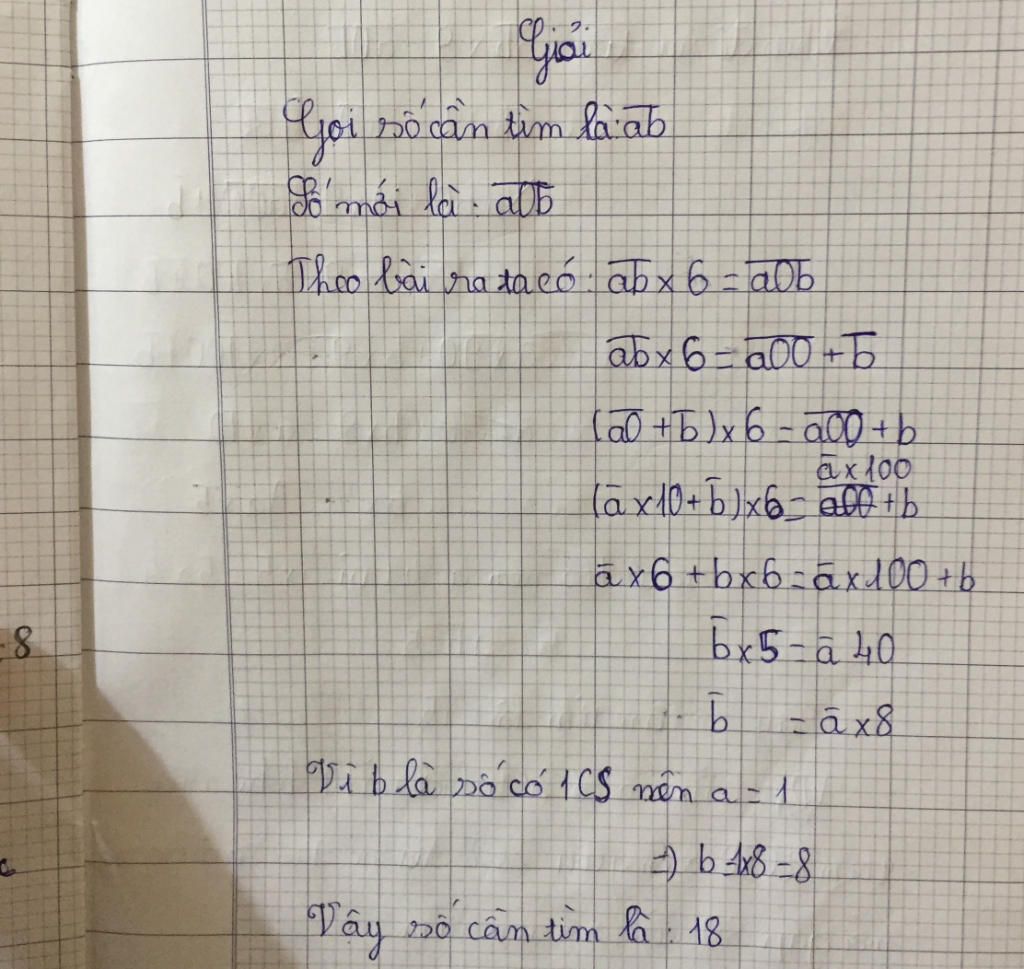 Giải
Gọi số cần tìm là: a̅b̅
Số mới là: a̅0̅b̅
Theo bài ra ta có: a̅b̅ x 6 = a̅0̅b̅
a̅b̅ x 6 = a̅0̅0̅ + b̅
(a̅0̅ + b̅) x 6 = a̅0̅0̅ + b
a̅ x 100
(a̅ x 10 + b̅) x 6 = a̅0̅0̅ + b
a̅ x 6 + b x 6 = a̅ x 100 + b
b̅ x 5 = a̅ 40
8
b̅ = a̅ x 8
Vì b là số có 1CS nên a = 1
=) b = 1x8 = 8
Vậy số cần tìm là: 18